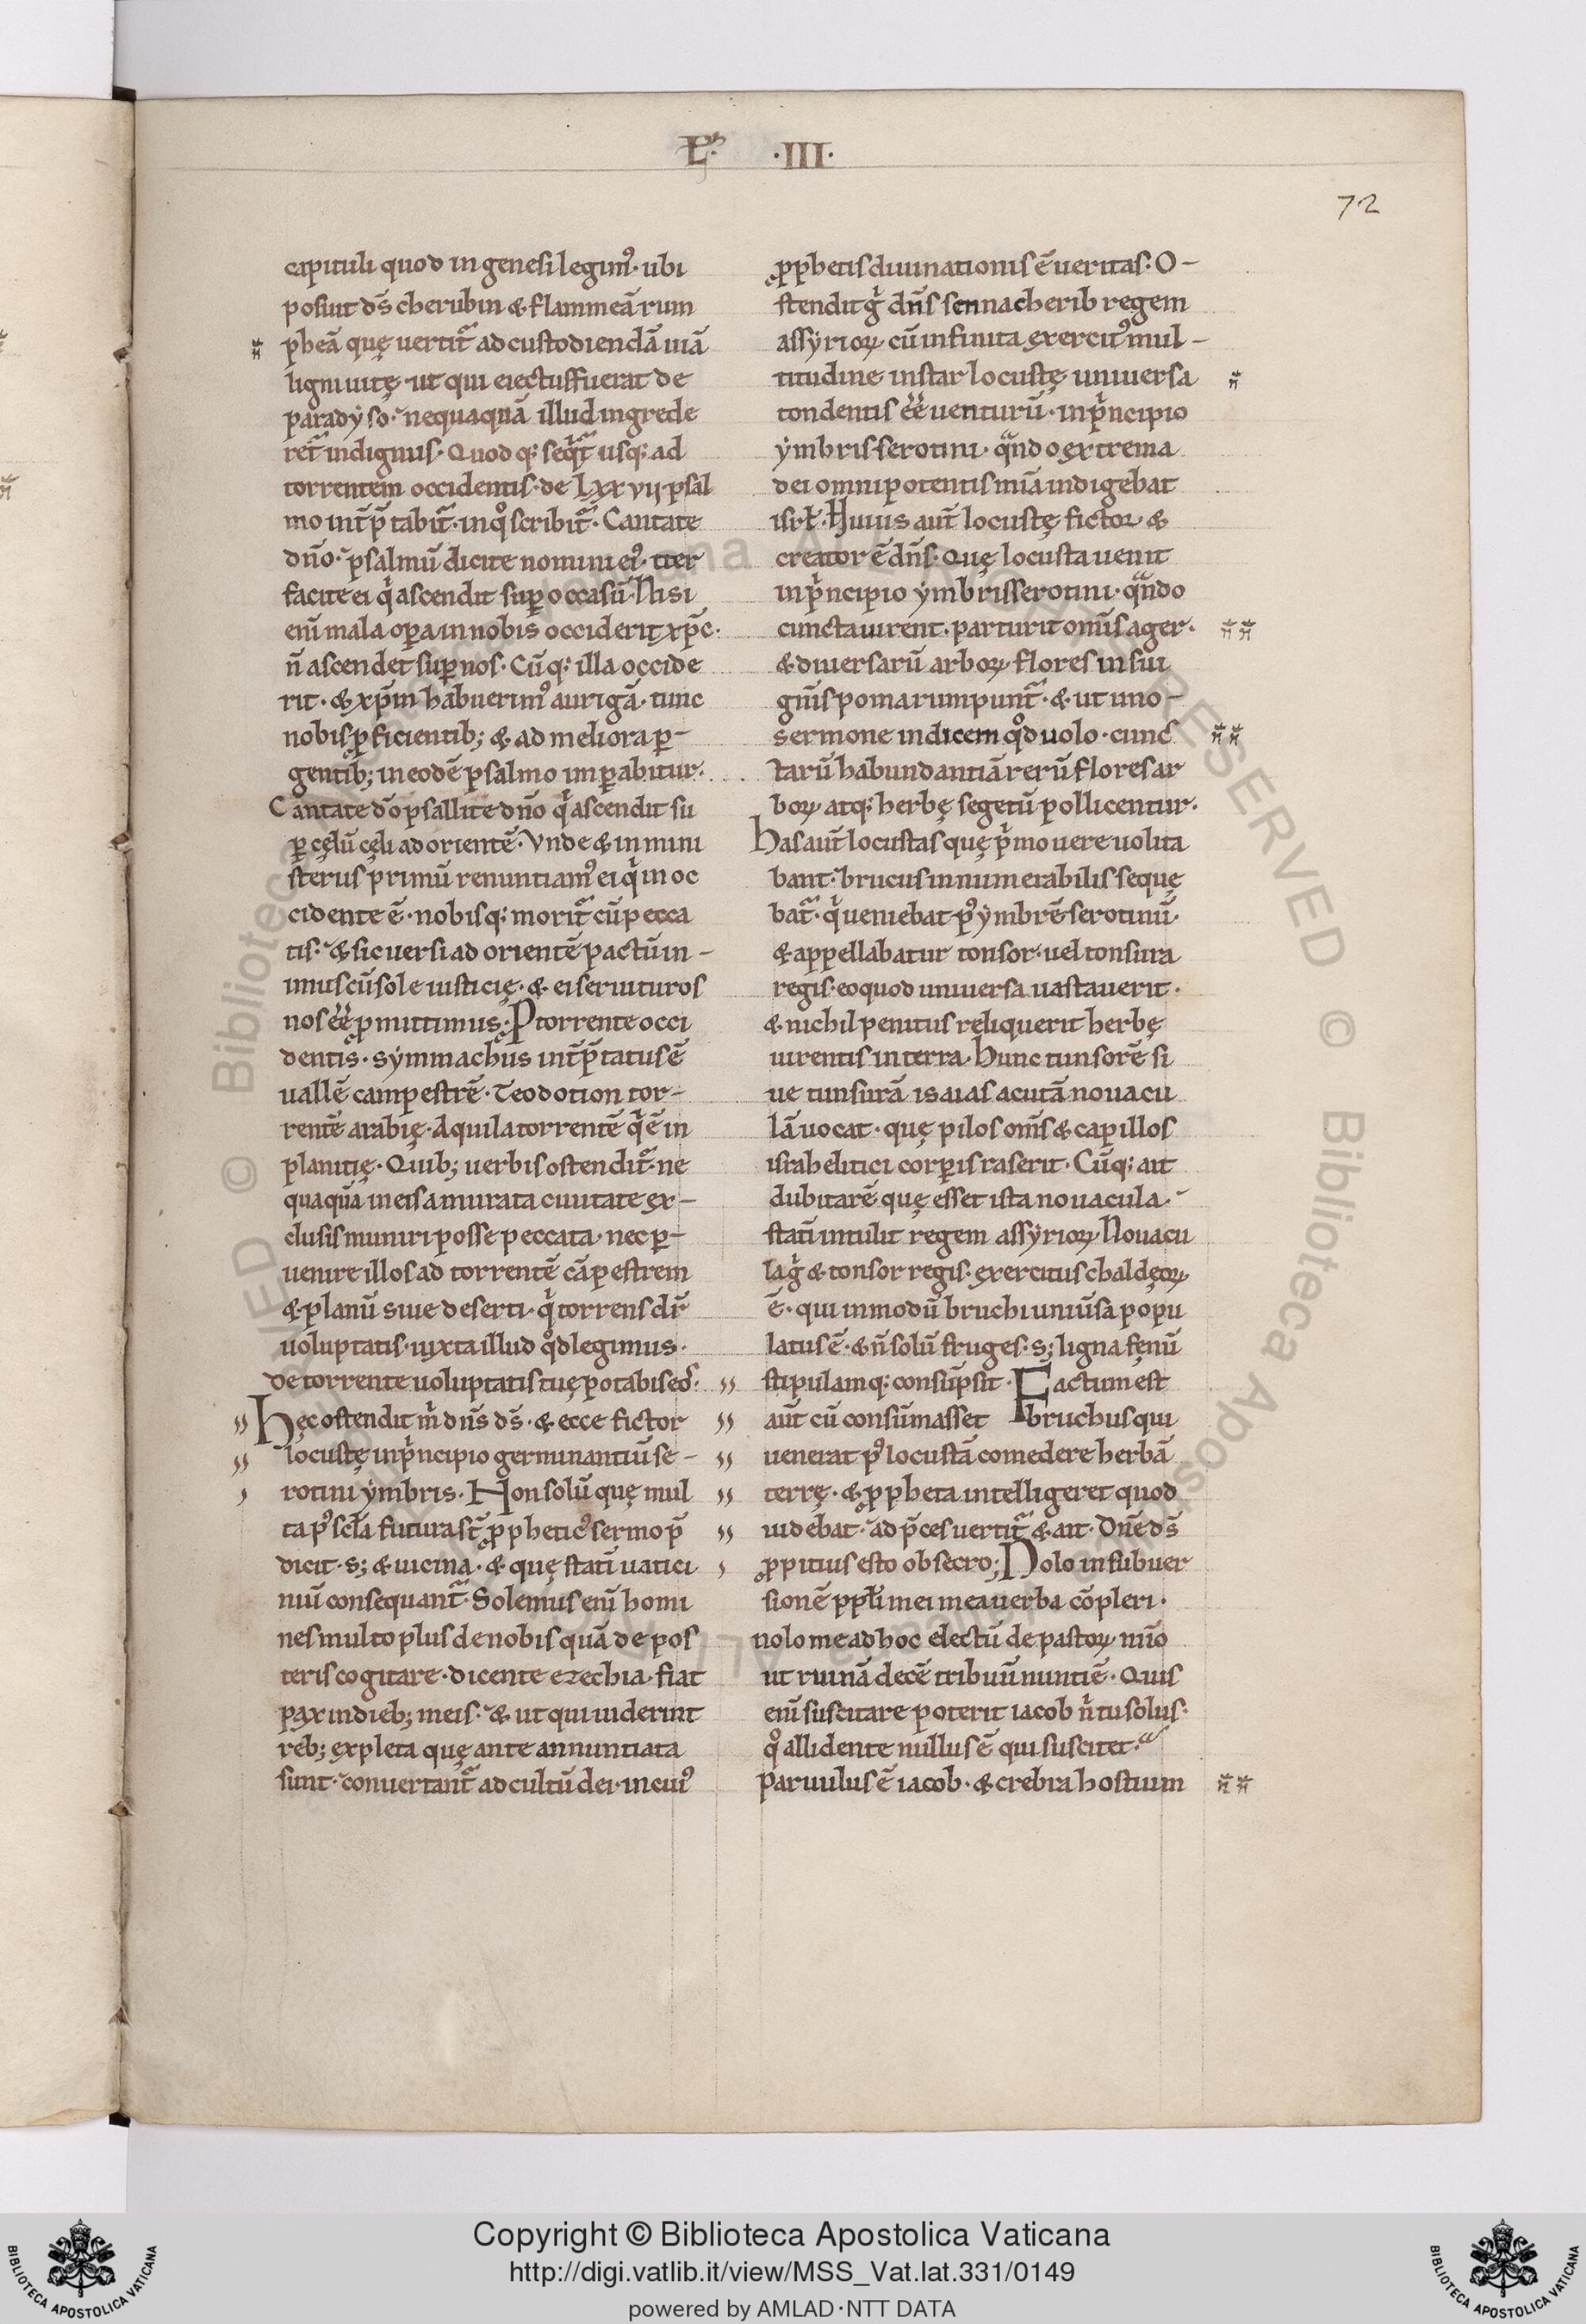 Lꝰ. ·III·
72
capituli quod in genesi legimꝰ· ubi
posuit ds̄ cherubin & flammeā rum
pheā quę uertit᷑ ad custodiendā uiā
ligni uitę· ut qui eiectus fuerat de
paradẏso· nequaquā illud ingrede
ret᷑ indignus· Quod q; seq̇t᷑ usq; ad
torrentem occidentis· de Lxxvij· psal
mo int̄p̄tabit᷑· in qͦ scribit᷑· Cantate
dn̄o· psalmū dicite nomini eiꝰ· iter
facite ei qͥ ascendit suꝑ occasū· Nisi
enī mala oꝑa in nobis occiderit xp̄c·
n̄ ascendet suꝑ nos· Cūq; illa occide
rit· & xp̄m habuerimꝰ aurigā· tunc
nobis ꝓficientib; & ad meliora ꝑ-
gentib; in eodē psalmo imꝑabitur·
Cantate dō psallite dn̄o qͥ ascendit su
ꝑ cęlū cęli ad orientē· Vnde & in mini
steriis primū renuntiamꝰ ei qͥ in oc
cidente ē· nobisq; morit᷑ cū pecca
tis· & sic uersi ad orientē pactū in-
imus cū sole iusticię· & ei seruituros
nos ēē ꝓmittimus· Ꝓ torrente occi
dentis· sẏmmachus int̄p̄tatus ē
uallē campestrē· Teodotion tor-
rentē arabię· Aquila torrentē qͥ ē in
planitię· Quib; uerbis ostendit᷑· ne
quaquā in eis amurata ciuitate ex-
clusis muniri posse peccata· nec ꝑ-
uenire illos ad torrentē cāpestrem
& planū siue deserti· qͥ torrens dr̄
uoluptatis· iuxta illud qͦd legimus·
de torrente uoluptatis tuę potabis eoſ·
Hęc ostendit m̄ dn̄s ds̄· & ecce fictor
locustę in pͥncipio germinantiū se-
rotini ẏmbris· Non solū quę mul
ta pꝰ scl̄a futura st̄ ꝓpheticꝰ sermo p̄
dicit· s; & uicina· & quę stati uatici
niū consequant᷑· Solemus enī homi
nes multo plus de nobis quā de pos
teris cogitare· dicente ezechia· fiat
pax in dieb; meis· & ut qui uiderint
reb; expleta quę ante annuntiata
sunt· conuertant᷑ ad cultū dei· in cuiꝰ
ꝓphetis diuinationis ē ueritas· O-
stendit g̊ dn̄s sennacherib regem
assẏrioꝝ cū infinita exercitꝰ mul-
titudine instar locustę uniuersa
tondentis ēē uenturū· in pͥncipio
ẏmbris serotini· qᵃndo extrema
dei omnipotentis mīa indigebat
isrł· Huius aut̄ locustę fictor &
creator ē dn̄s· Quę locusta uenit
in pͥncipio ẏmbris serotini· qᵃndo
cuncta uirent· parturit om̄is ager·
& diuersarū arboꝝ flores in sui
gn̄is poma rumpunt᷑· & ut uno-
sermone indicem qͦd uolo· cunc
tarū habundantiā rerū flores ar
boꝝ atq; herbę segetū pollicentur·
Has aut̄ locustas quę pͥmo uere uolita
bant· brucus innumerabilis seque
bat᷑· qͥ ueniebat pꝰ ẏmbrē serotinū·
& appellabatur tonsor· uel tonsura
regis· eo quod uniuersa uastauerit·
& nichil penitus reliquerit herbę
uirentis in terra· Hunc tunsorē si
ue tunsurā isaias acutā nouacu
lā uocat· quę pilos om̄s & capillos
israhelitici corꝑis raserit· Cūq; ait
dubitarē quę esset ista nouacula·
statī intulit regem assẏrioꝝ Nouacu
la g̊ & tonsor regis· exercitus chaldęoꝝ
ē· qui in modū bruchi uniūsa popu
latus ē· & n̄ solū fruges· s; ligna fęnū
stipulamq; consūpsit· Factum est
aut̄ cū consūmasset bruchus qui
uenerat pꝰ locustā comedere herbā
terrę· & ꝓpheta intelligeret quod
uidebat· ad p̄ces uertit᷑ & ait· Dn̄e ds̄
ꝓpitius esto obsecro; Nolo in subuer
sionē ppłi mei mea uerba cōpleri·
nolo me ad hoc electū de pastoꝝ nūo
ut ruinā decē tribuū nuntiē· Quis
enī suscitare poterit iacob n̄ tu solus·
qͦ allidente nullus ē qui suscitet·
Paruulus ē iacob· & crebra hostium
Copyright © Biblioteca Apostolica Vaticana
http://digi.vatlib.it/view/MSS_Vat.lat.331/0149
powered by AMLAD·NTT DATA
BIBLIOTECA APOSTOLICA VATICANA
BIBLIOTECA APOSTOLICA VATICANA